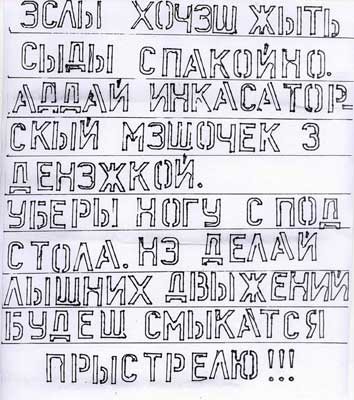 ЭСЛЫ ХОЧЭШ ЖЫТЬ
СЫДЫ СПАКОЙНО.
АДДАЙ ИНКАСАТОР-
СКЫЙ МЭШОЧЕК З
ДЕНЭЖКОЙ.
УБЕРЫ НОГУ С ПОД
СТОЛА. НЭ ДЕЛАЙ
ЛЫШНИХ ДВЫЖЕНИЙ
БУДЕШ СМЫКАТСЯ
ПРЫСТРЕЛЮ!!!